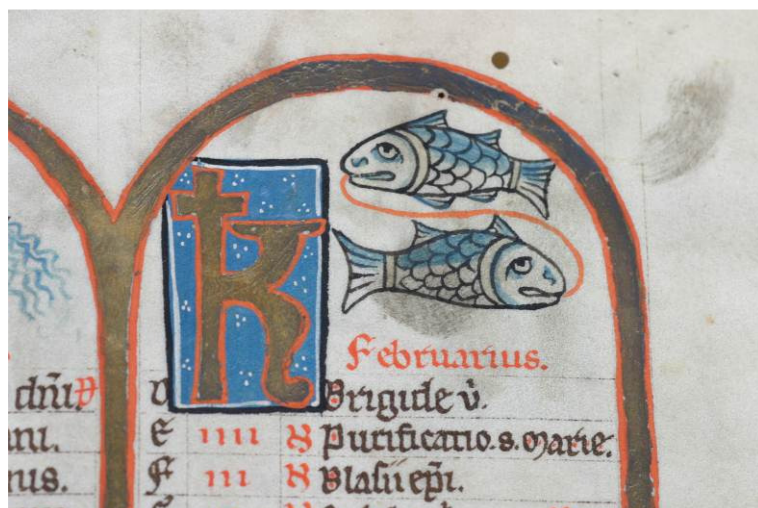 k
Februarius.
dñi. D Brigide v̄.
E iiii N Purificatio. s. Marie.
nus. F iii N Blasii ep̄i.